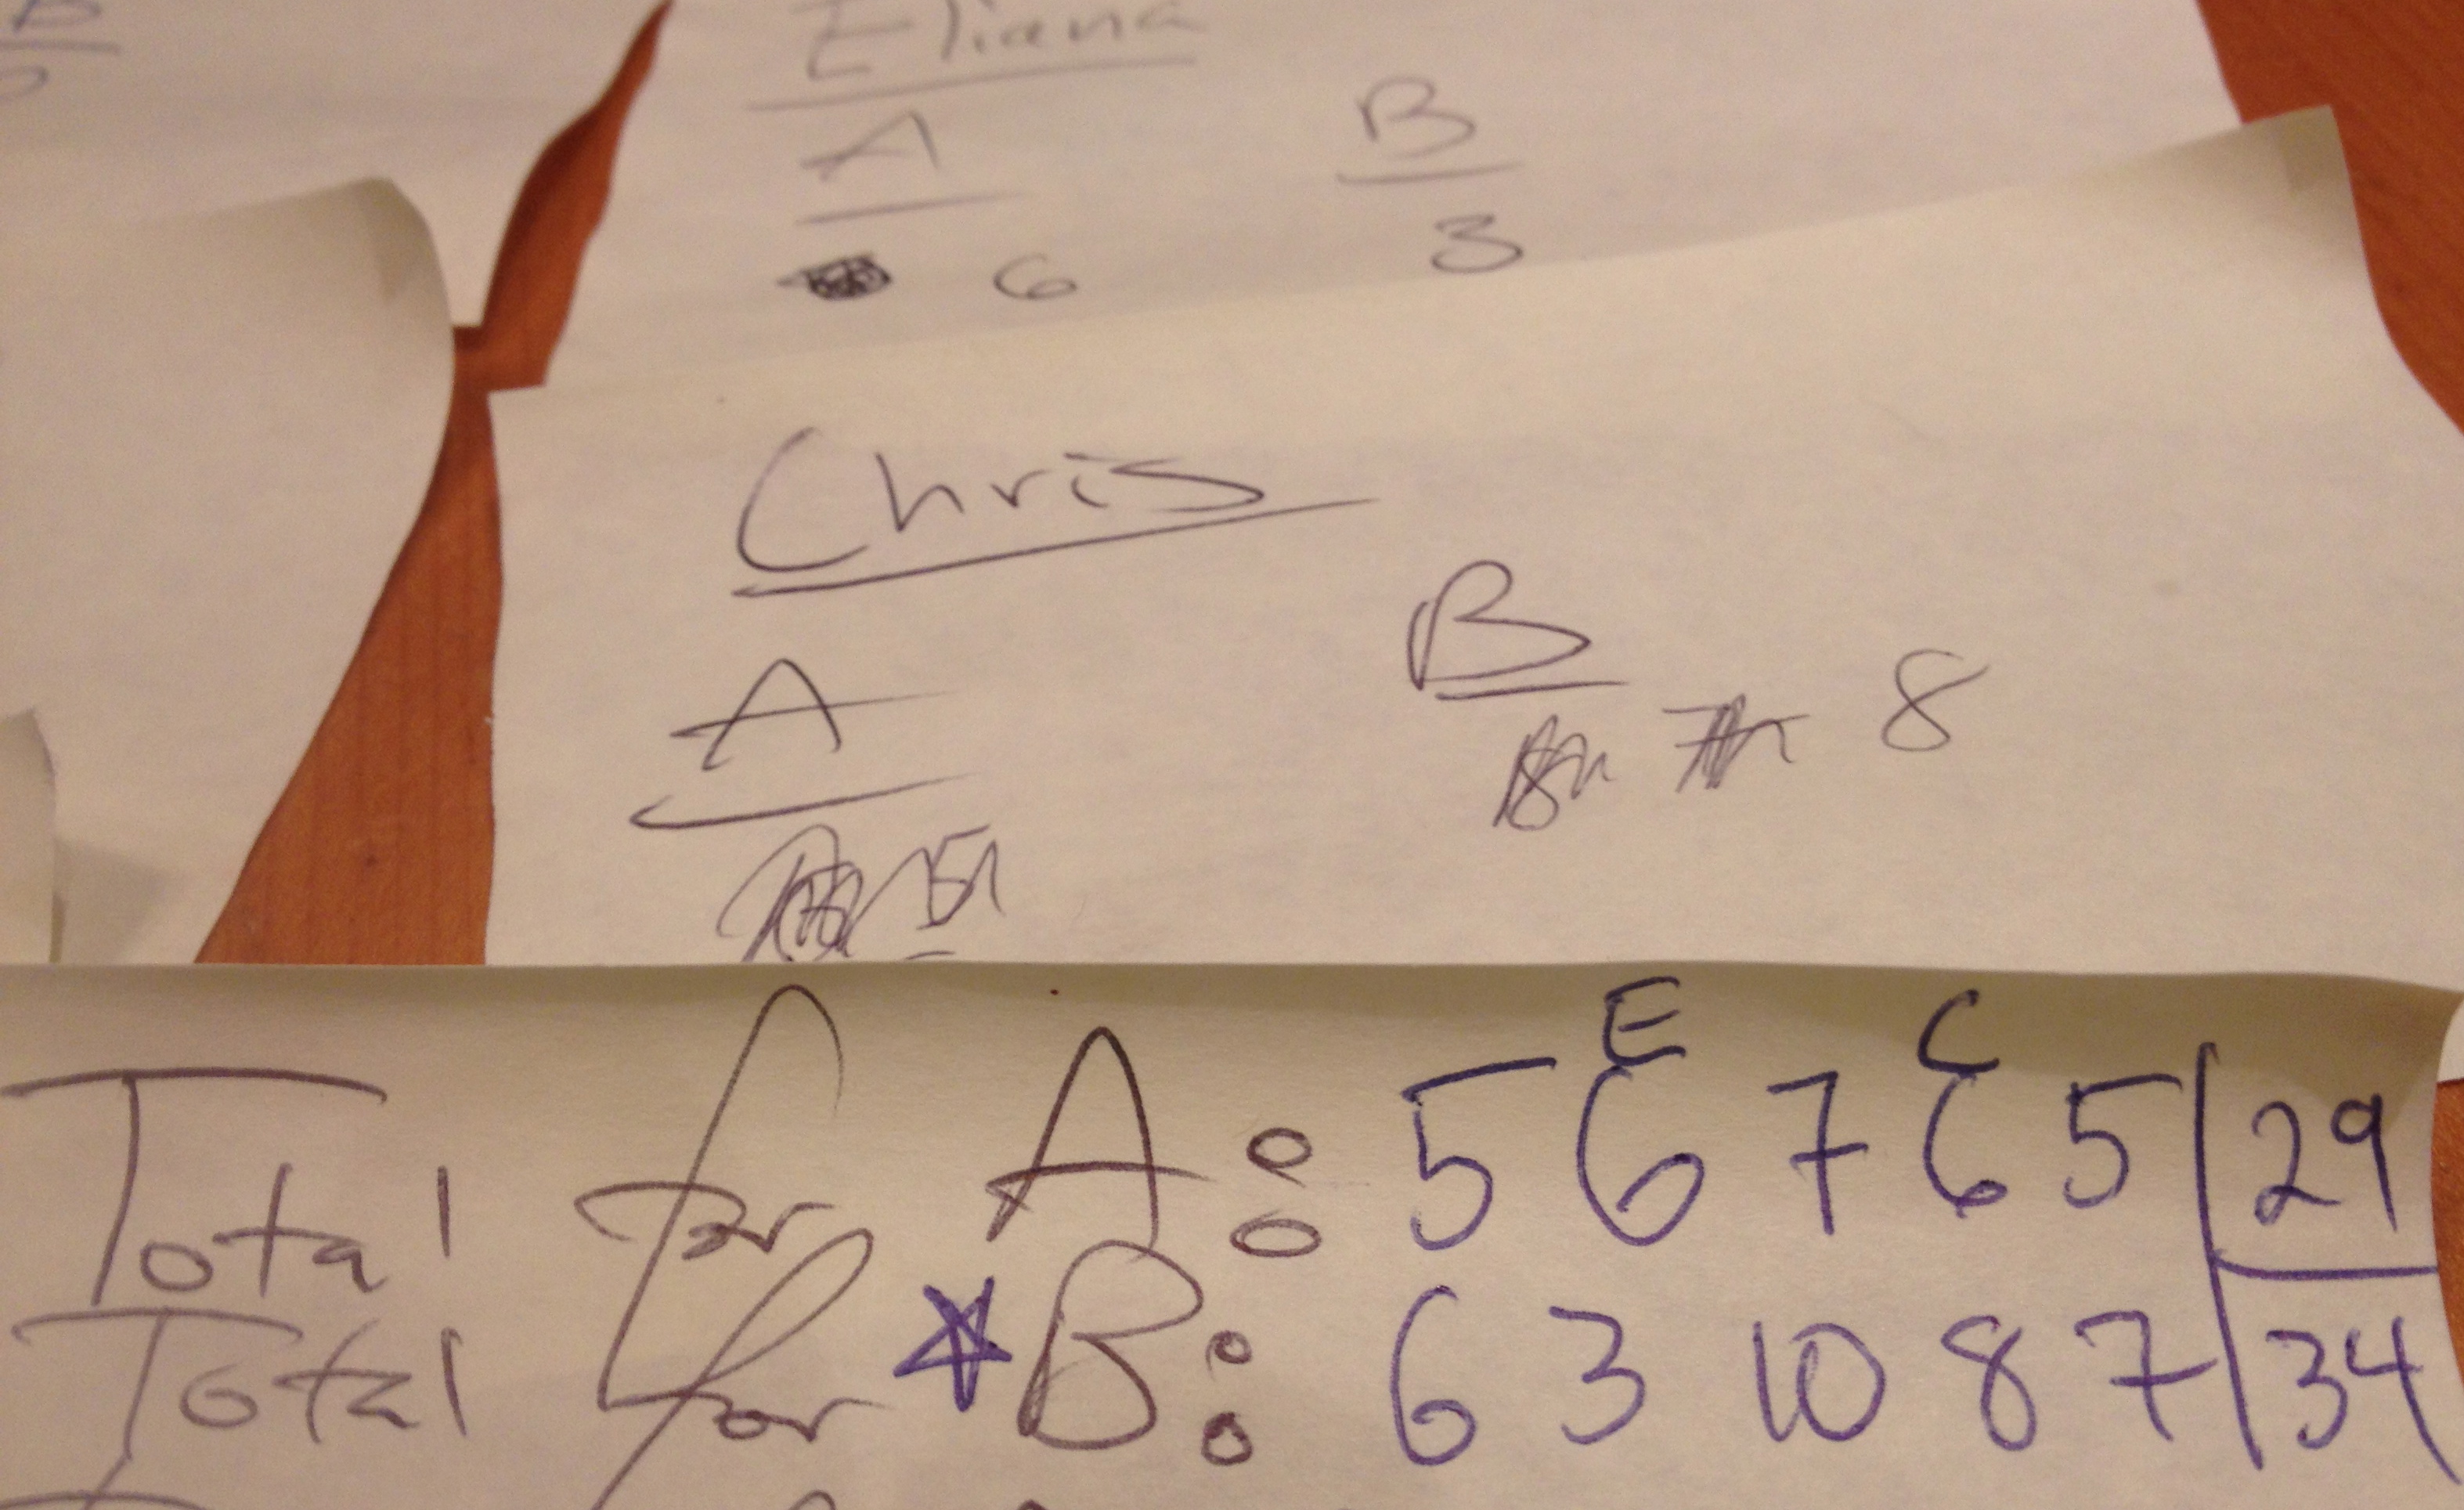 B
Eliana
A B
6 3
Chris
A B
8
E C
Total for A: 5 6 7 6 5 29
Total for B: 6 3 10 8 7 34